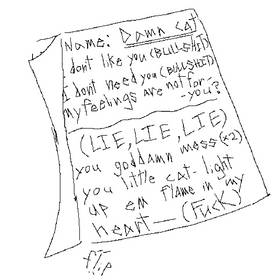 Name: Damn cat
I dont like you (BULLSHIT)
I dont need you (BULLSHIT)
my feelings are not for
-you?
(LIE, LIE, LIE)
you goddamn mess (x2)
you little cat- light
up em flame in my
heart— (FUCK)
flip